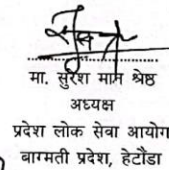 मा. सुरेश मान श्रेष्ठ
अध्यक्ष
प्रदेश लोक सेवा आयोग
बाग्मती प्रदेश, हेटौंडा